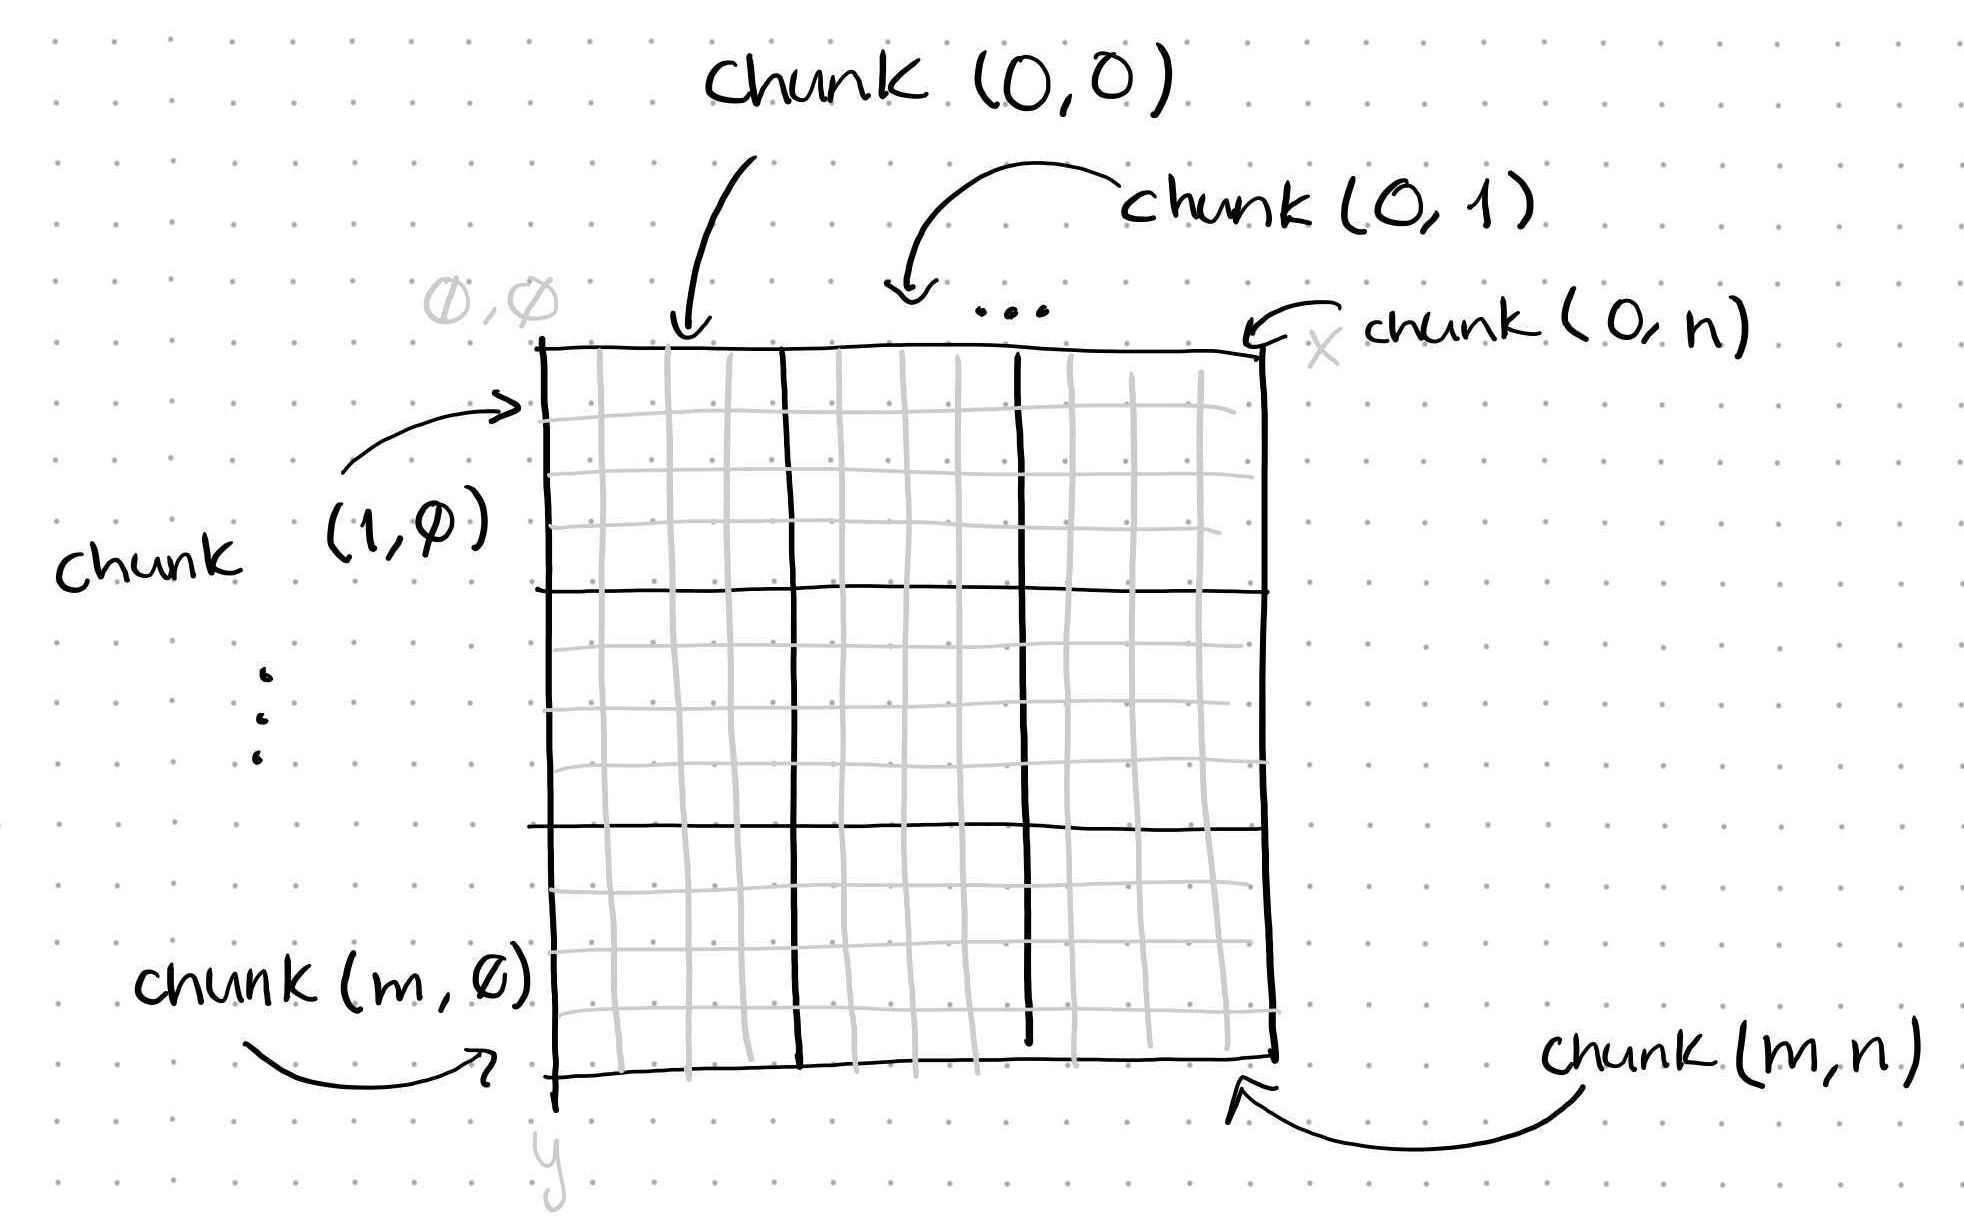 chunk (0,0)
chunk (0,1)
0,0
...
x
chunk (0,n)
chunk (1,0)
⋮
chunk (m,0)
chunk (m,n)
y